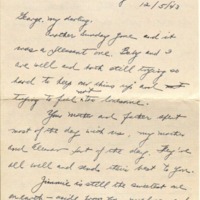 12/5/43
George, my darling,
Another Sunday gone and it
was a pleasant one. Baby and I
are well and both still trying so
hard to keep our chins up and not
trying to feel too lonesome.
Your mother and father spent
most of the day with us, my mother
and for part of the day. They're
all well and send their best to you.
Jimmie is still the sweetest one
on earth –